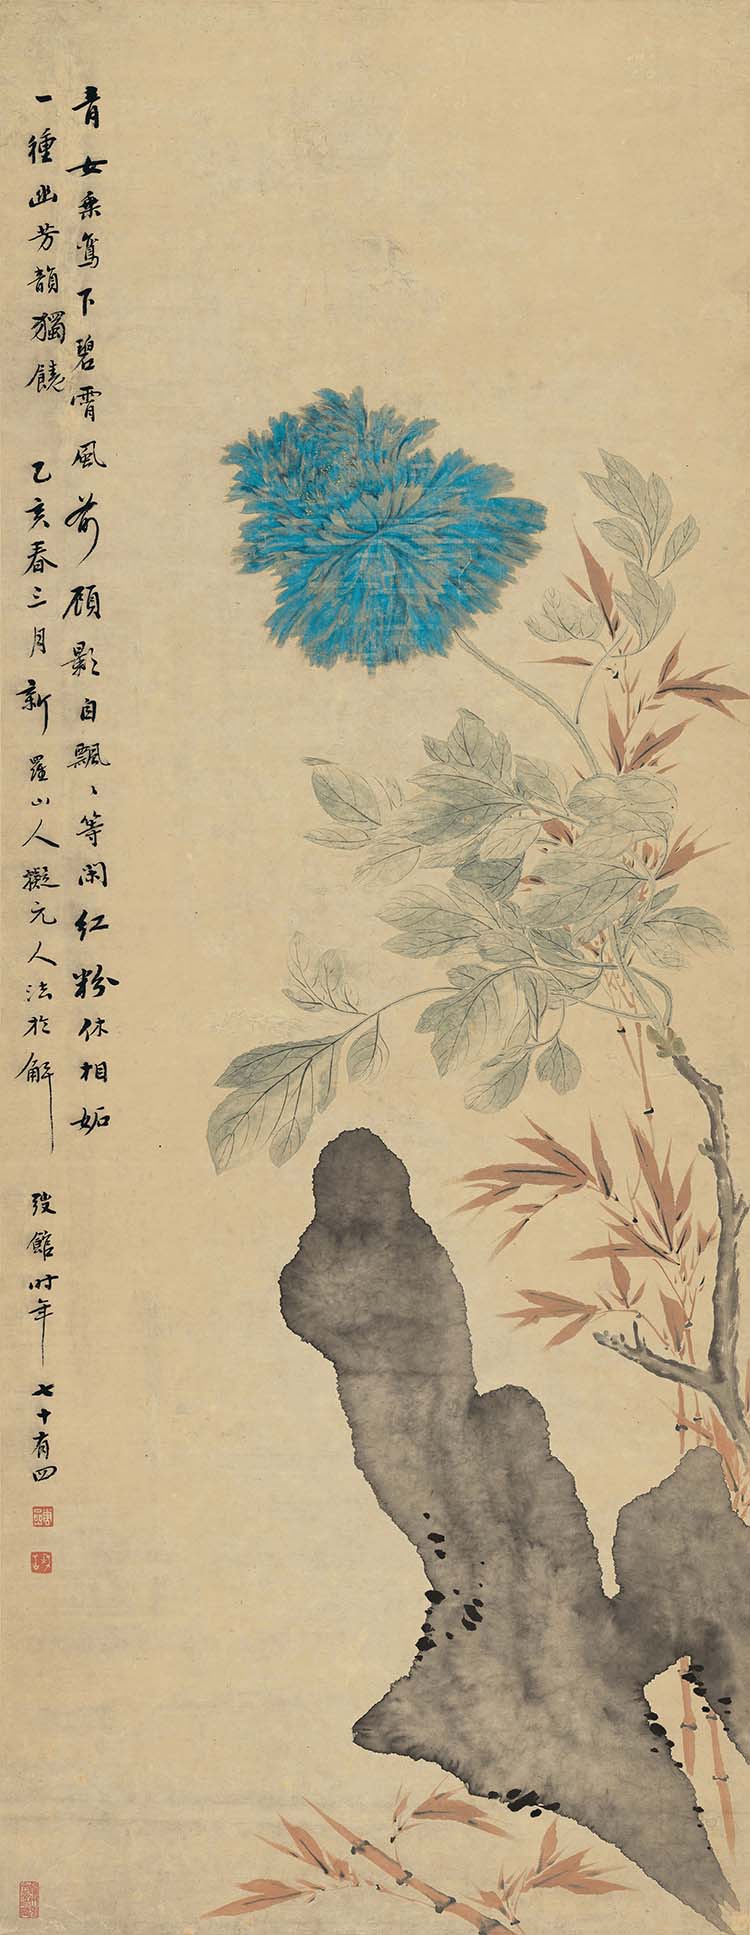 青女乘鸞下碧霄風前顧影自飄〻等閑紅粉休相妬
一種幽芳韻獨饒　乙亥春三月新羅山人擬元人法於解
弢館時年七十有四